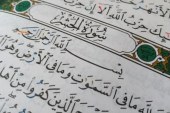 حِزْبُ اللَّهِ أَلَا
سُورَةُ الْحَشْرِ
لِلَّهِ مَا فِي السَّمَوَتِ وَمَا فِي الْأَرْضِ وَهُوَ
الَّذِينَ كَفَرُوا مِنْ أَهْلِ